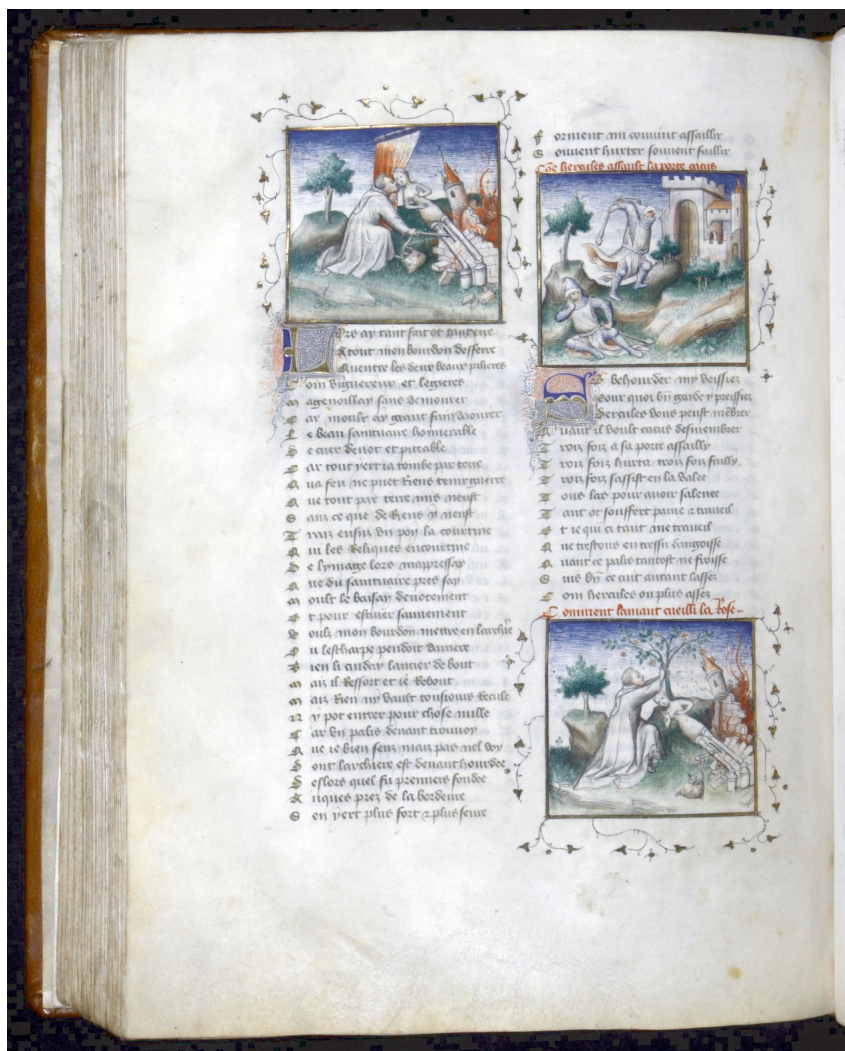 Pres ay tant fait et tant erre
A tout mon bourdon defferre
Quentre les deux beaux piliers
Com viguereux et legieres
Magenoillay sans demourer
Car moult ay grant fain daourer
Le beau santuaire honnerable
De cuer devot et piteable
Car tout yert ia tombe par terre
Qua feu ne puet Riens tenir guerre
Que tout par terre mis neust
Sanz ce que de Riens y neust
Trais ensus un poy la courtine
Qui les Reliques encourtine
De lymage lors mapressay
Que du santuaire pres say
Moult le baisay devotement
Et pour estuier sauvement
Voulz mon bourdon mettre en larchie
Ou lescharpe pendoit darriere
Bien li cuiday lancier de bout
Maiz il Ressort et ie Rebout
Maiz Rien my vault tousiours Recule
Ny pot entrer pour chose nulle
Car un palis devant trouvoy
Que ie bien sens maiz pas nel voy
Dont larchiere est devant hourdee
Deslors quel fu premiers fondee
Auques prez de la bordeure
Sen yert plus fort et plus seure
Forment mi convint assaillir
Souvent hurter souvent faillir
Cõe hercules assault la porte cacus
Se behourder my veissiez
Pour quoi bñ garde y preissiez
Dercules vous peust mẽbrer
Quant il voult cacus desmembrer
Troiz foiz a sa porte assailly
Troiz foiz hurta troiz foiz failly
Troiz foiz sassist en la valee
Tous las pour avoir salenee
Tant ot souffert paine et traveil
Et ie qui ci tant me traveil
Que trestous en tressu dangoisse
Quant ce palis tantost ne froisse
Suis bñ ce cuit autant lassez
Com hercules ou plus assez
Comment lamant cueilli la Rose